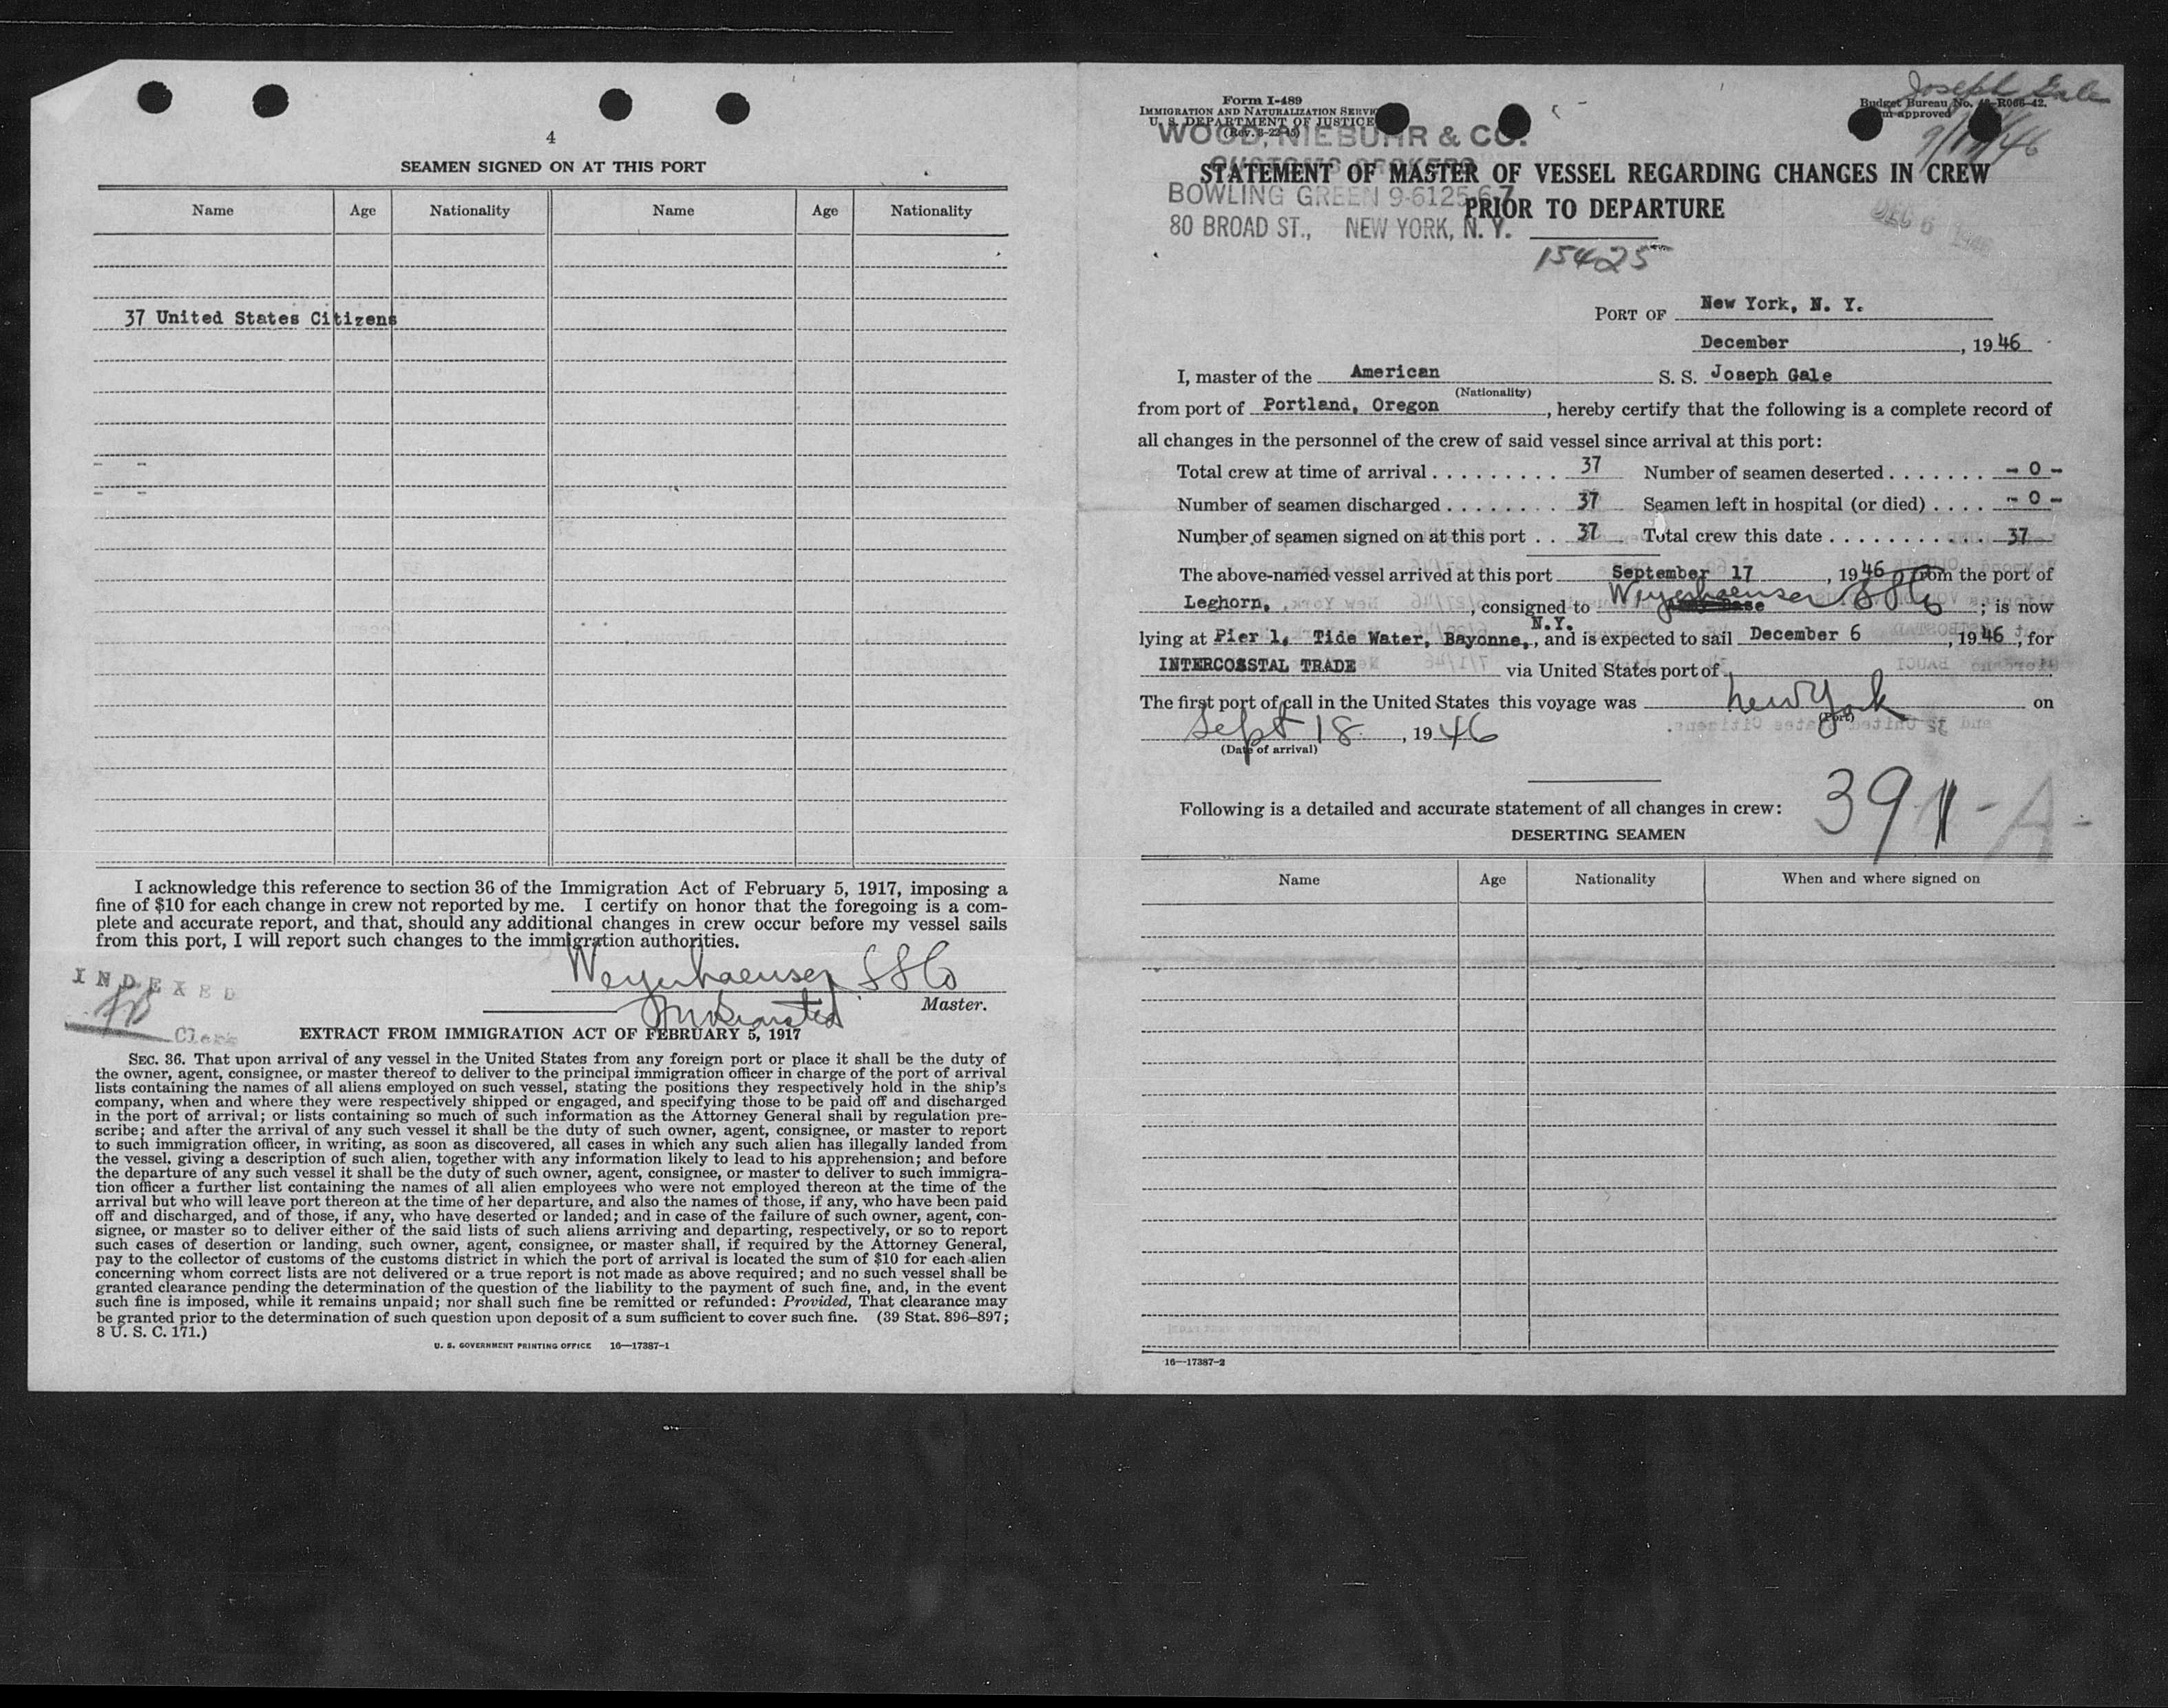 4
SEAMEN SIGNED ON AT THIS PORT
Name Age Nationality Name Age Nationality
37 United States Citizens
I acknowledge this reference to section 36 of the Immigration Act of February 5, 1917, imposing a
fine of $10 for each change in crew not reported by me. I certify on honor that the foregoing is a com-
plete and accurate report, and that, should any additional changes in crew occur before my vessel sails
from this port, I will report such changes to the immigration authorities.
INDEXED
Weyerhaeuser SS Co
Master.
Clerk
EXTRACT FROM IMMIGRATION ACT OF FEBRUARY 5, 1917
SEC. 36. That upon arrival of any vessel in the United States from any foreign port or place it shall be the duty of
the owner, agent, consignee, or master thereof to deliver to the principal immigration officer in charge of the port of arrival
lists containing the names of all aliens employed on such vessel, stating the positions they respectively hold in the ship's
company, when and where they were respectively shipped or engaged, and specifying those to be paid off and discharged
in the port of arrival; or lists containing so much of such information as the Attorney General shall by regulation pre-
scribe; and after the arrival of any such vessel it shall be the duty of such owner, agent, consignee, or master to report
to such immigration officer, in writing, as soon as discovered, all cases in which any such alien has illegally landed from
the vessel, giving a description of such alien, together with any information likely to lead to his apprehension; and before
the departure of any such vessel it shall be the duty of such owner, agent, consignee, or master to deliver to such immigra-
tion officer a further list containing the names of all alien employees who were not employed thereon at the time of the
arrival but who will leave port thereon at the time of her departure, and also the names of those, if any, who have been paid
off and discharged, and of those, if any, who have deserted or landed; and in case of the failure of such owner, agent, con-
signee, or master so to deliver either of the said lists of such aliens arriving and departing, respectively, or so to report
such cases of desertion or landing, such owner, agent, consignee, or master shall, if required by the Attorney General,
pay to the collector of customs of the customs district in which the port of arrival is located the sum of $10 for each alien
concerning whom correct lists are not delivered or a true report is not made as above required; and no such vessel shall be
granted clearance pending the determination of the question of the liability to the payment of such fine, and, in the event
such fine is imposed, while it remains unpaid; nor shall such fine be remitted or refunded: Provided, That clearance may
be granted prior to the determination of such question upon deposit of a sum sufficient to cover such fine. (39 Stat. 896–897;
8 U. S. C. 171.)
U. S. GOVERNMENT PRINTING OFFICE 16—17387-1
Joseph Gale
Form I-489
IMMIGRATION AND NATURALIZATION SERVICE
U. S. DEPARTMENT OF JUSTICE
(Rev. 3-22-45)
Budget Bureau No. 43-R066-42.
approved
WOOD, NIEBUHR & CO.
CUSTOMS BROKERS
BOWLING GREEN 9-6125-6-7
80 BROAD ST., NEW YORK, N. Y.
STATEMENT OF MASTER OF VESSEL REGARDING CHANGES IN CREW
PRIOR TO DEPARTURE
DEC 6
15425
PORT OF New York, N. Y.
December, 1946
I, master of the American S. S. Joseph Gale
(Nationality)
from port of Portland, Oregon, hereby certify that the following is a complete record of
all changes in the personnel of the crew of said vessel since arrival at this port:
Total crew at time of arrival . . . . . . . . . 37 Number of seamen deserted . . . . . . . - 0 -
Number of seamen discharged . . . . . . . . 37 Seamen left in hospital (or died) . . . . - 0 -
Number of seamen signed on at this port . . 37 Total crew this date . . . . . . . . . . . 37
The above-named vessel arrived at this port September 17, 1946 from the port of
Leghorn, consigned to Weyerhaeuser SS Co; is now
N.Y.
lying at Pier 1, Tide Water, Bayonne,, and is expected to sail December 6, 1946, for
INTERCOSSTAL TRADE via United States port of
The first port of call in the United States this voyage was New York on
(Port)
Sept 18, 1946
(Date of arrival)
Following is a detailed and accurate statement of all changes in crew:
DESERTING SEAMEN
Name Age Nationality When and where signed on
16—17387-2